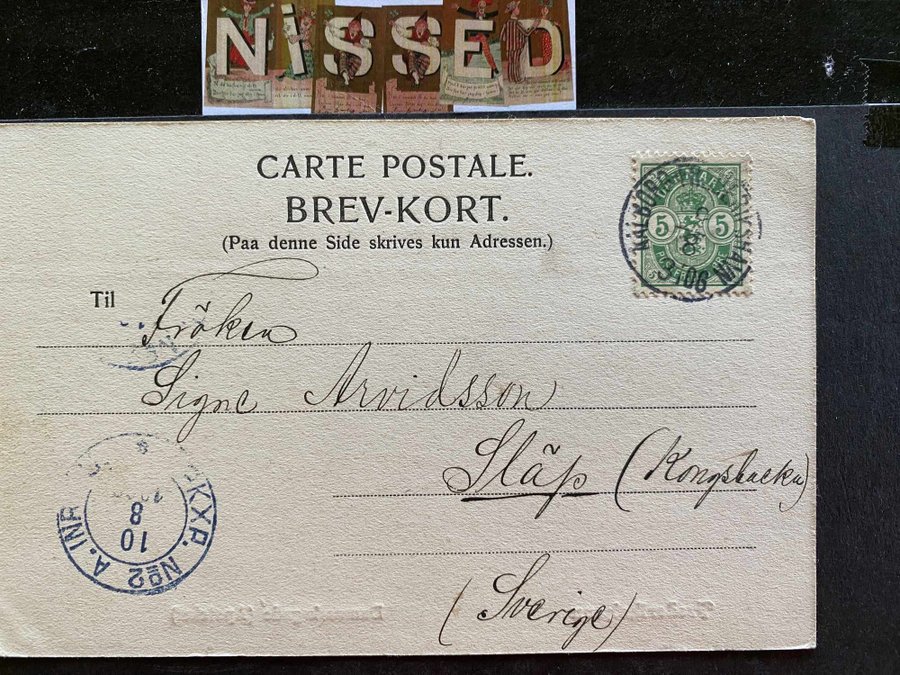 NiSSED
CARTE POSTALE.
BREV-KORT.
(Paa denne Side skrives kun Adressen.)
5 5
Til
Fröken
Signe Arvidsson
Släp (Kongsbacka)
(Sverige)
PKXP. No 2 A. INR
10
8